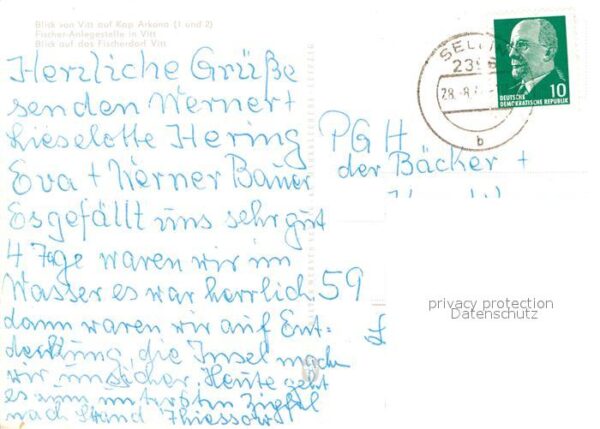 Blick von Vitt auf Kap Arkona (1 und 2)
Fischer-Anlegestelle in Vitt
Blick auf das Fischerdorf Vitt
Herzliche Grüße
senden Werner +
Lieselotte Hering
Eva + Werner Bauer
Es gefällt uns sehr gut
4 Tage waren wir im
Wasser es war herrlich
dann waren wir auf Ent-
deckung, die Insel machen
wir unsicher. Heute geht
es zum untersten Zipfel
nach Strand Thiessow
SELLIN
28.-8.
b
10
DEUTSCHE
DEMOKRATISCHE REPUBLIK
PGH
der Bäcker +
59
privacy protection
Datenschutz